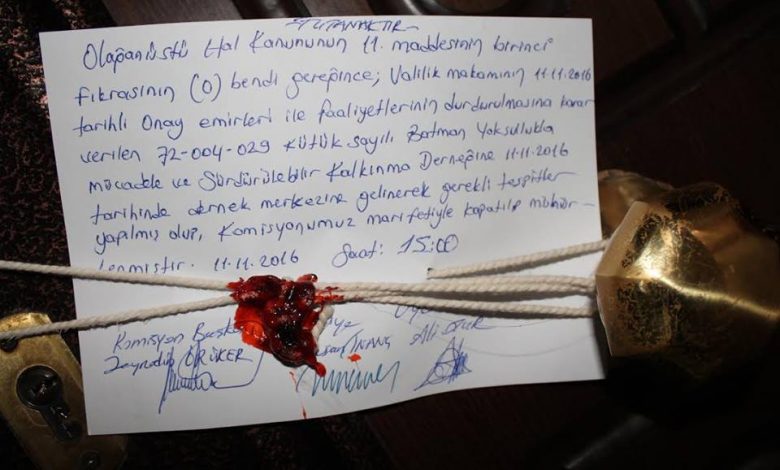 TUTANAKTIR
Olağanüstü Hal Kanununun 11. maddesinin birinci
fıkrasının (O) bendi gereğince; Valilik makamının 11.11.2016
tarihli Onay emirleri ile faaliyetlerinin durdurulmasına karar
verilen 72-004-029 Kütük sayılı Batman Yoksullukla
mücadele ve Sürdürülebilir Kalkınma Derneğine 11-11-2016
tarihinde dernek merkezine gelinerek gerekli tespitler
yapılmış olup, Komisyonumuz marifetiyle kapatılıp mühür-
lenmiştir. 11.11.2016 Saat: 15:00
Komisyon